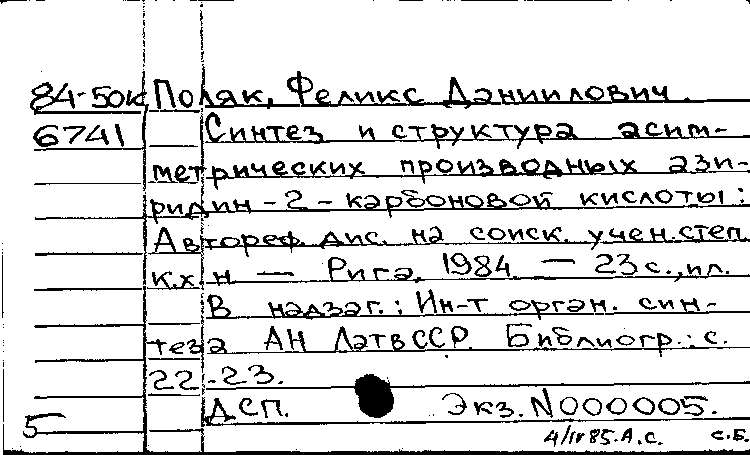 84-50к Поляк, Феликс Даниилович.
6741 Синтез и структура асим-
метрических производных ази-
ридин-2-карбоновой кислоты:
Автореф. дис. на соиск. учен. степ.
к.х.н. — Рига, 1984. — 23 с., ил.
В надзаг.: Ин-т орган. син-
теза АН ЛатвССР. Библиогр.: с.
22-23.
ДСП. Экз. N000005.
5
4/IV 85. А.С. С.Б.